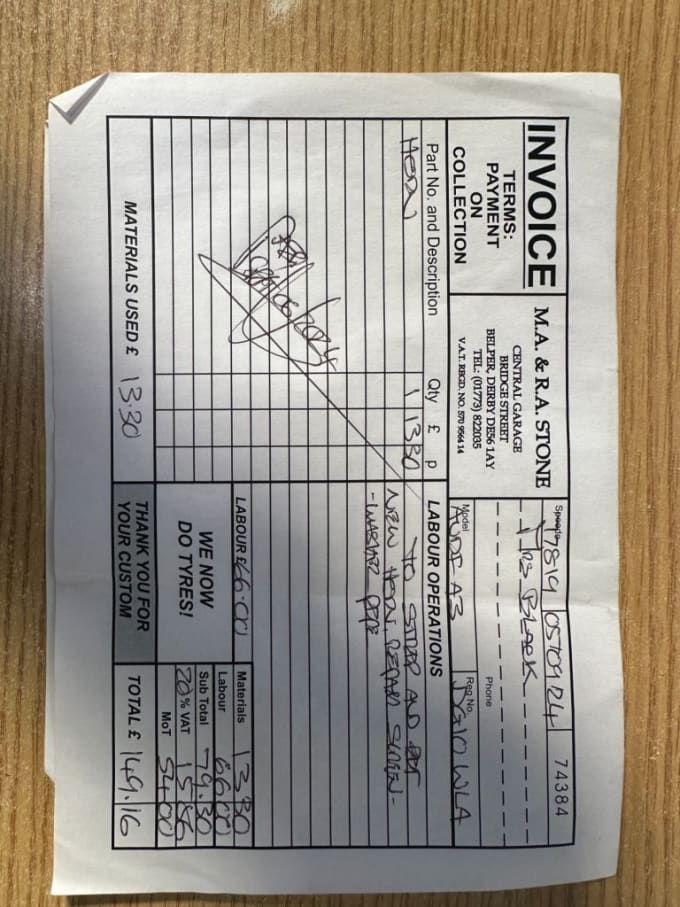 INVOICE
TERMS:
PAYMENT
ON
COLLECTION
M.A. & R.A. STONE
CENTRAL GARAGE
BRIDGE STREET
BELPER, DERBY DE56 1AY
TEL: (01773) 822035
V.A.T. REGD. NO. 570 9564 14
Speedo 7819 05/09/24 74384
Mrs BLOOK
Phone
Model AUDI A3
Reg No. WLA
Part No. and Description Qty £ p LABOUR OPERATIONS
HORN 1 13 30
TO STRIP AND PUT
NEW HORN, REPAIR SCREEN-
-WASHER PIPE
MATERIALS USED £ 13.30
LABOUR £ 66.00
WE NOW
DO TYRES!
THANK YOU FOR
YOUR CUSTOM
Materials 13 30
Labour 66 00
Sub Total 79.30
20% VAT 15 86
MoT 54 00
TOTAL £ 149.16